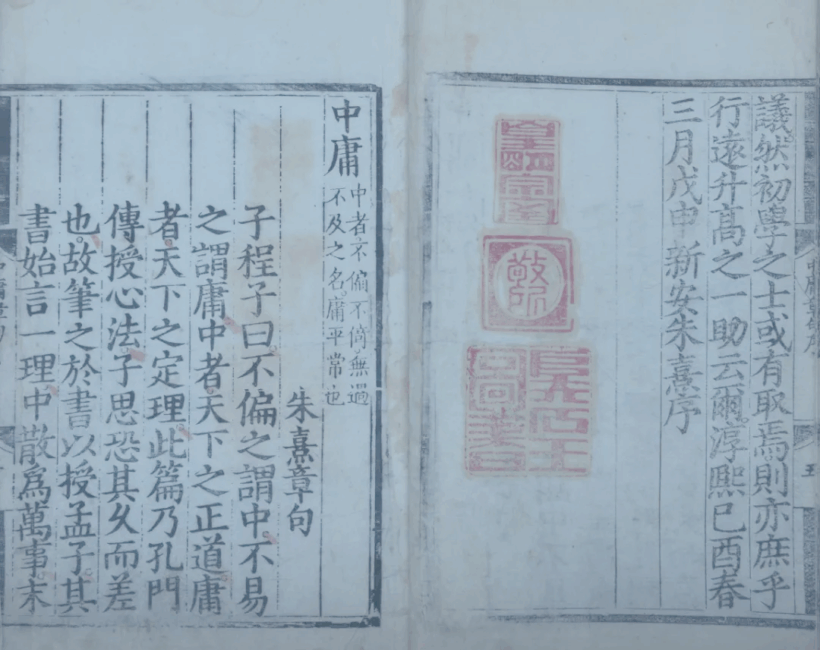 議然初學之士或有取焉則亦庶乎
行遠升高之一助云爾淳熙己酉春
三月戊申新安朱熹序
中庸
中者不偏不倚無過
不及之名庸平常也
朱熹章句
子程子曰不偏之謂中不易
之謂庸中者天下之正道庸
者天下之定理此篇乃孔門
傳授心法子思恐其久而差
也故筆之於書以授孟子其
書始言一理中散爲萬事末
五